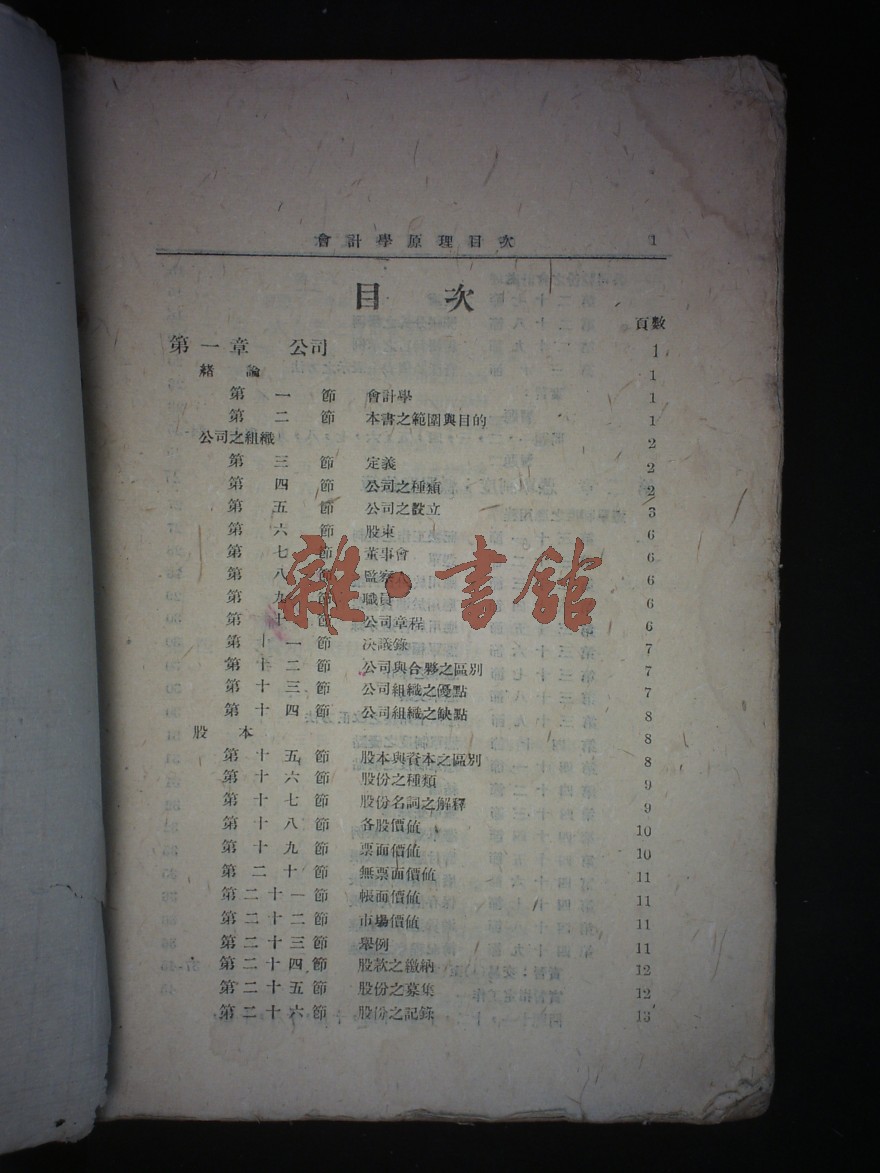 會計學原理目次 1
目次
頁數
第一章 公司 1
緒論 1
第一節 會計學 1
第二節 本書之範圍與目的 1
公司之組織 2
第三節 定義 2
第四節 公司之種類 2
第五節 公司之設立 3
第六節 股東 6
第七節 董事會 6
第八節 監察人 6
第九節 職員 6
第十節 公司章程 6
第十一節 决議錄 7
第十二節 公司與合夥之區別 7
第十三節 公司組織之優點 7
第十四節 公司組織之缺點 8
股本 8
第十五節 股本與資本之區別 8
第十六節 股份之種類 9
第十七節 股份名詞之解釋 9
第十八節 各股價值 10
第十九節 票面價值 10
第二十節 無票面價值 11
第二十一節 帳面價值 11
第二十二節 市場價值 11
第二十三節 舉例 11
第二十四節 股款之繳納 12
第二十五節 股份之募集 12
第二十六節 股份之記錄 13
雜·書館